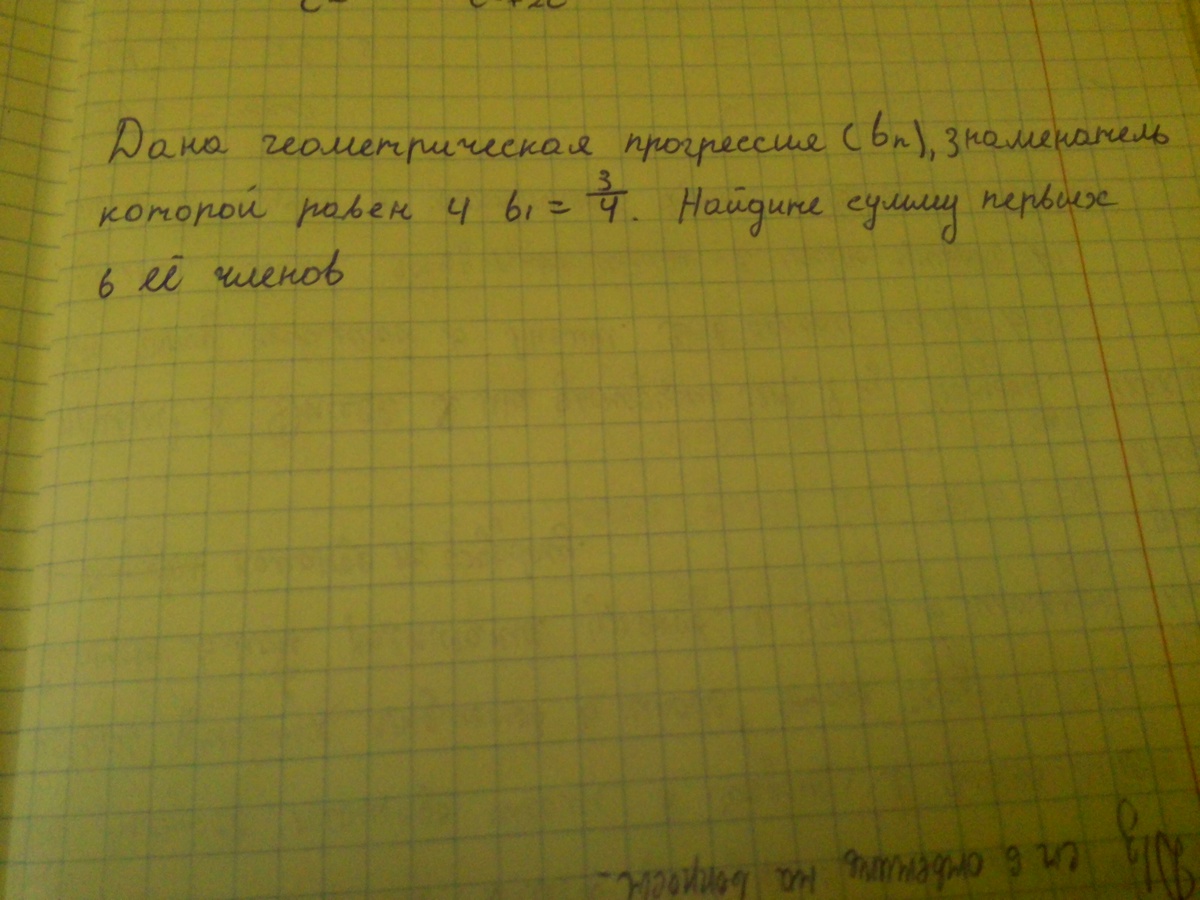 Дана геометрическая прогрессия (bn), знаменатель
которой равен 4 b1 = 3/4. Найдите сумму первых
6 её членов